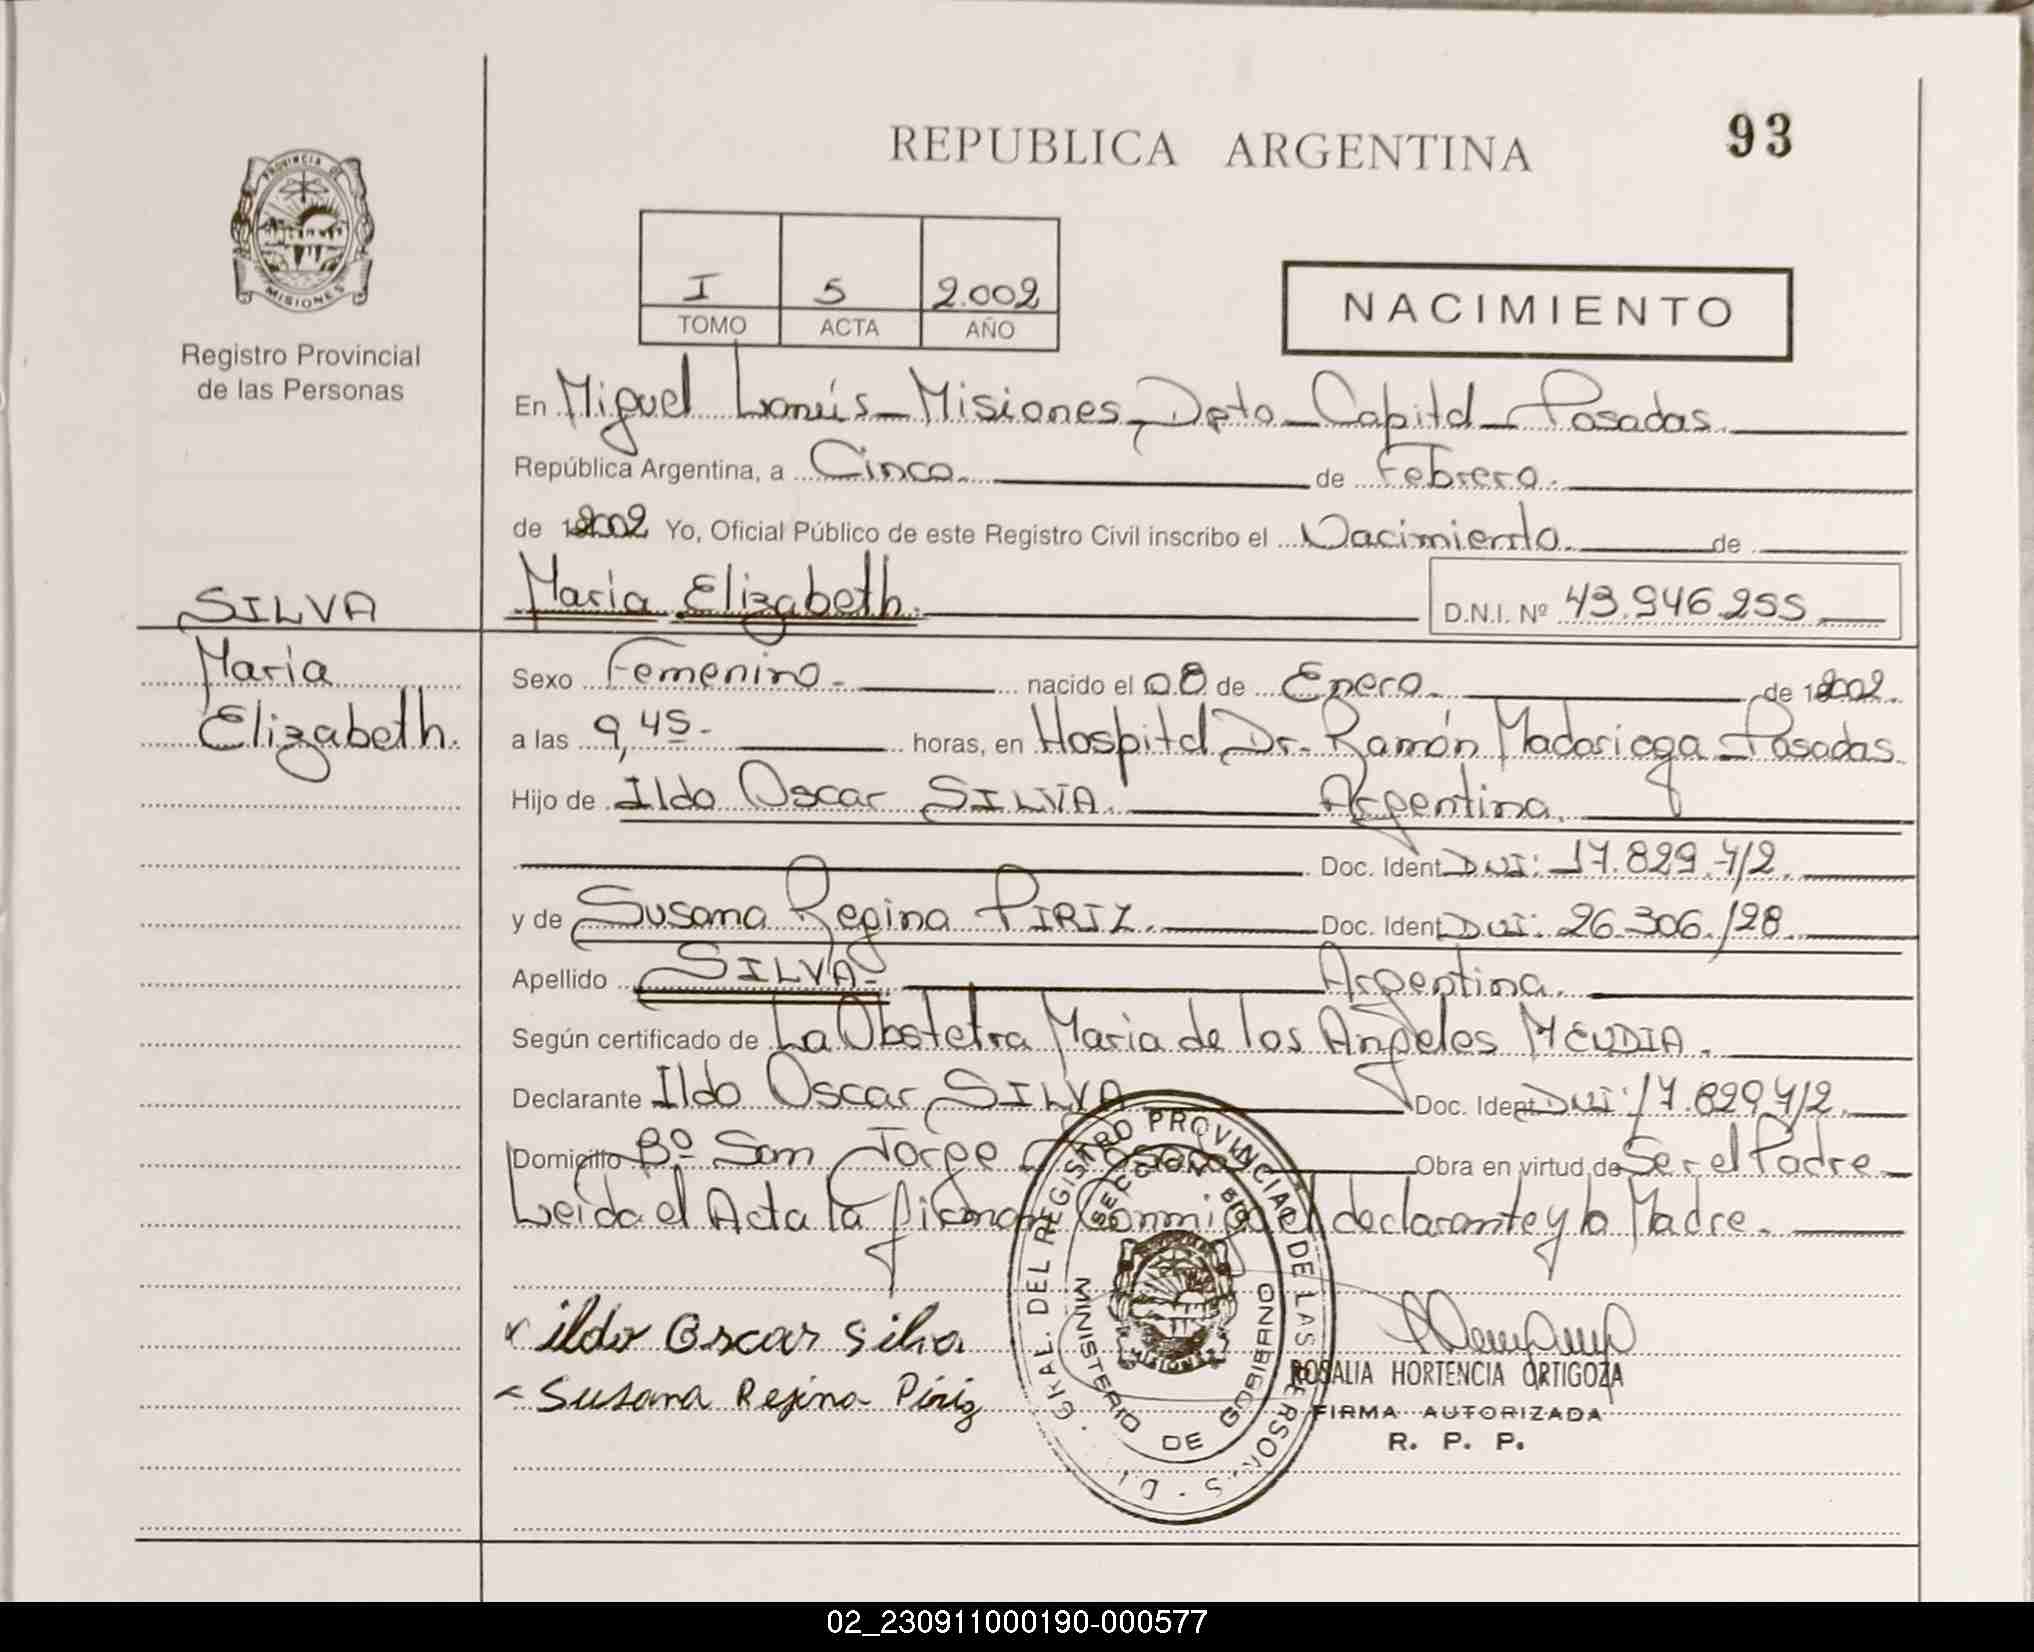 93
REPUBLICA ARGENTINA
PROVINCIA DE
MISIONES
Registro Provincial
de las Personas
I 5 2.002
TOMO ACTA AÑO
NACIMIENTO
En Miguel Lanús - Misiones, Dpto - Capital - Posadas.
República Argentina, a Cinco. de Febrero.
de 2002 Yo, Oficial Público de este Registro Civil inscribo el Nacimiento. de
SILVA
Maria Elizabeth. D.N.I. Nº 43.946.255
Maria
Elizabeth.
Sexo Femenino. nacido el 08 de Enero. de 2002.
a las 9,45.- horas, en Hospital Dr. Ramón Madariaga - Posadas.
Hijo de Ildo Oscar SILVA. Argentina.
Doc. Ident DNI: 17.829.412.
y de Susana Regina PIRIZ. Doc. Ident DNI: 26.306.128.
Apellido SILVA.- Argentina.
Según certificado de La Obstetra Maria de los Angeles MENDIA.
Declarante Ildo Oscar SILVA Doc. Ident DNI: 17.829.412.
Domicilio Bº San Jorge - Posadas Obra en virtud de Ser el Padre
Leida el Acta la firman Conmigo el declarante y la Madre.
ildo Oscar Silva
Susana Regina Piriz
GRAL. DEL REGISTRO PROVINCIAL DE LAS PERSONAS
SECCION
MINISTERIO DE GOBIERNO
MISIONES
ROSALIA HORTENCIA ORTIGOZA
FIRMA AUTORIZADA
R. P. P.
02_230911000190-000577